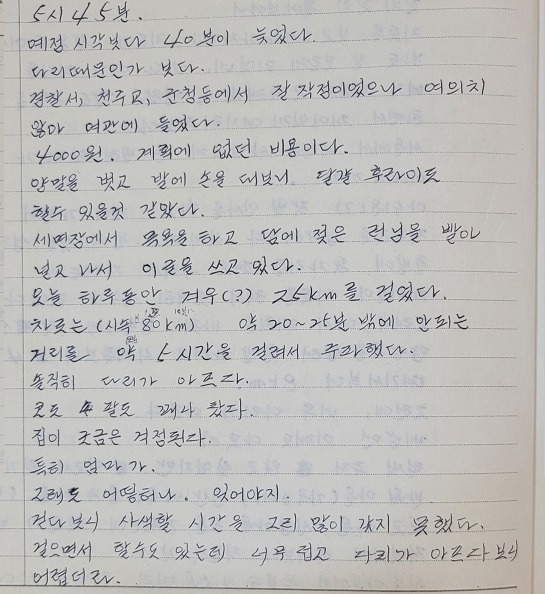 5시 45분.
예정 시각보다 40분이 늦었다.
다리때문인가 보다.
경찰서, 천주교, 군청등에서 잘 작정이었으나 여의치
않아 여관에 들었다.
4000원. 계획에 없던 비용이다.
양말을 벗고 발에 손을 대보니 달걀 후라이도
할수 있을것 같았다.
세면장에서 목욕을 하고 땀에 젖은 런닝을 빨아
널고 나서 이글을 쓰고 있다.
오늘 하루동안 겨우(?) 25km를 걸었다.
차로는 (시속 80km) 약 20~25분 밖에 안되는
거리를 약 5시간을 걸려서 주파했다.
솔직히 다리가 아프다.
코도 팔도 꽤나 탔다.
집이 조금은 걱정된다.
특히 엄마가.
그래도 어떻하나. 잊어야지.
걷다보니 사색할 시간을 그리 많이 갖지 못했다.
걸으면서 할수도 있는데 너무 덥고 다리가 아프다보니
어렵더라.